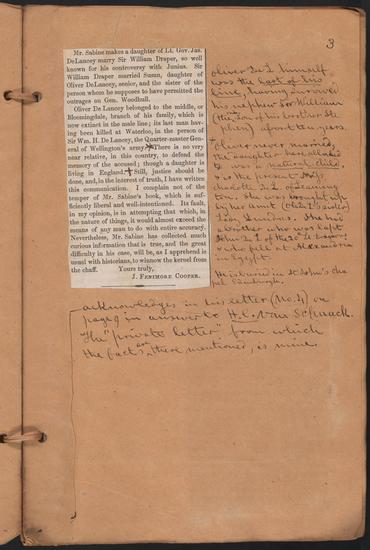 3
Mr. Sabine makes a daughter of Lt. Gov. Jas.
DeLancey marry Sir William Draper, so well
known for his controversy with Junius. Sir
William Draper married Susan, daughter of
Oliver DeLancey, senior, and the sister of the
person whom he supposes to have permitted the
outrages on Gen. Woodhull.
Oliver De Lancey belonged to the middle, or
Bloomingdale, branch of his family, which is
now extinct in the male line; its last man hav-
ing been killed at Waterloo, in the person of
Sir Wm. H. De Lancey, the Quarter-master Gen-
eral of Wellington's army. There is no very
near relative, in this country, to defend the
memory of the accused; though a daughter is
living in England. Still, justice should be
done, and, in the interest of truth, I have written
this communication. I complain not of the
temper of Mr. Sabine's book, which is suf-
ficiently liberal and well-intentioned. Its fault,
in my opinion, is in attempting that which, in
the nature of things, it would almost exceed the
means of any man to do with entire accuracy.
Nevertheless, Mr. Sabine has collected much
curious information that is true, and the great
difficulty in his case, will be, as I apprehend is
usual with historians, to winnow the kernel from
the chaff. Yours truly,
J. Fenimore Cooper.
Oliver De L himself
was the last of his
line, having survived
his nephew Sir William
(the son of his brother Ste
phen) about ten years.
+ Oliver never married,
the daughter here alluded
to was a natural child.
is the present Mrs
Charlotte De L of Leaming
ton. She was brought up
by her aunt
Dundas. She had
a brother who was Capt
John De L of the
who fell at Alexandria
in Egypt.
He is buried in St John's Cha
pel Edinburgh.
acknowledges in his letter (No. 4) on
page 9 in answer to H. C. Van Schaack.
The "private letter" from which
the facts are there mentioned, is mine.